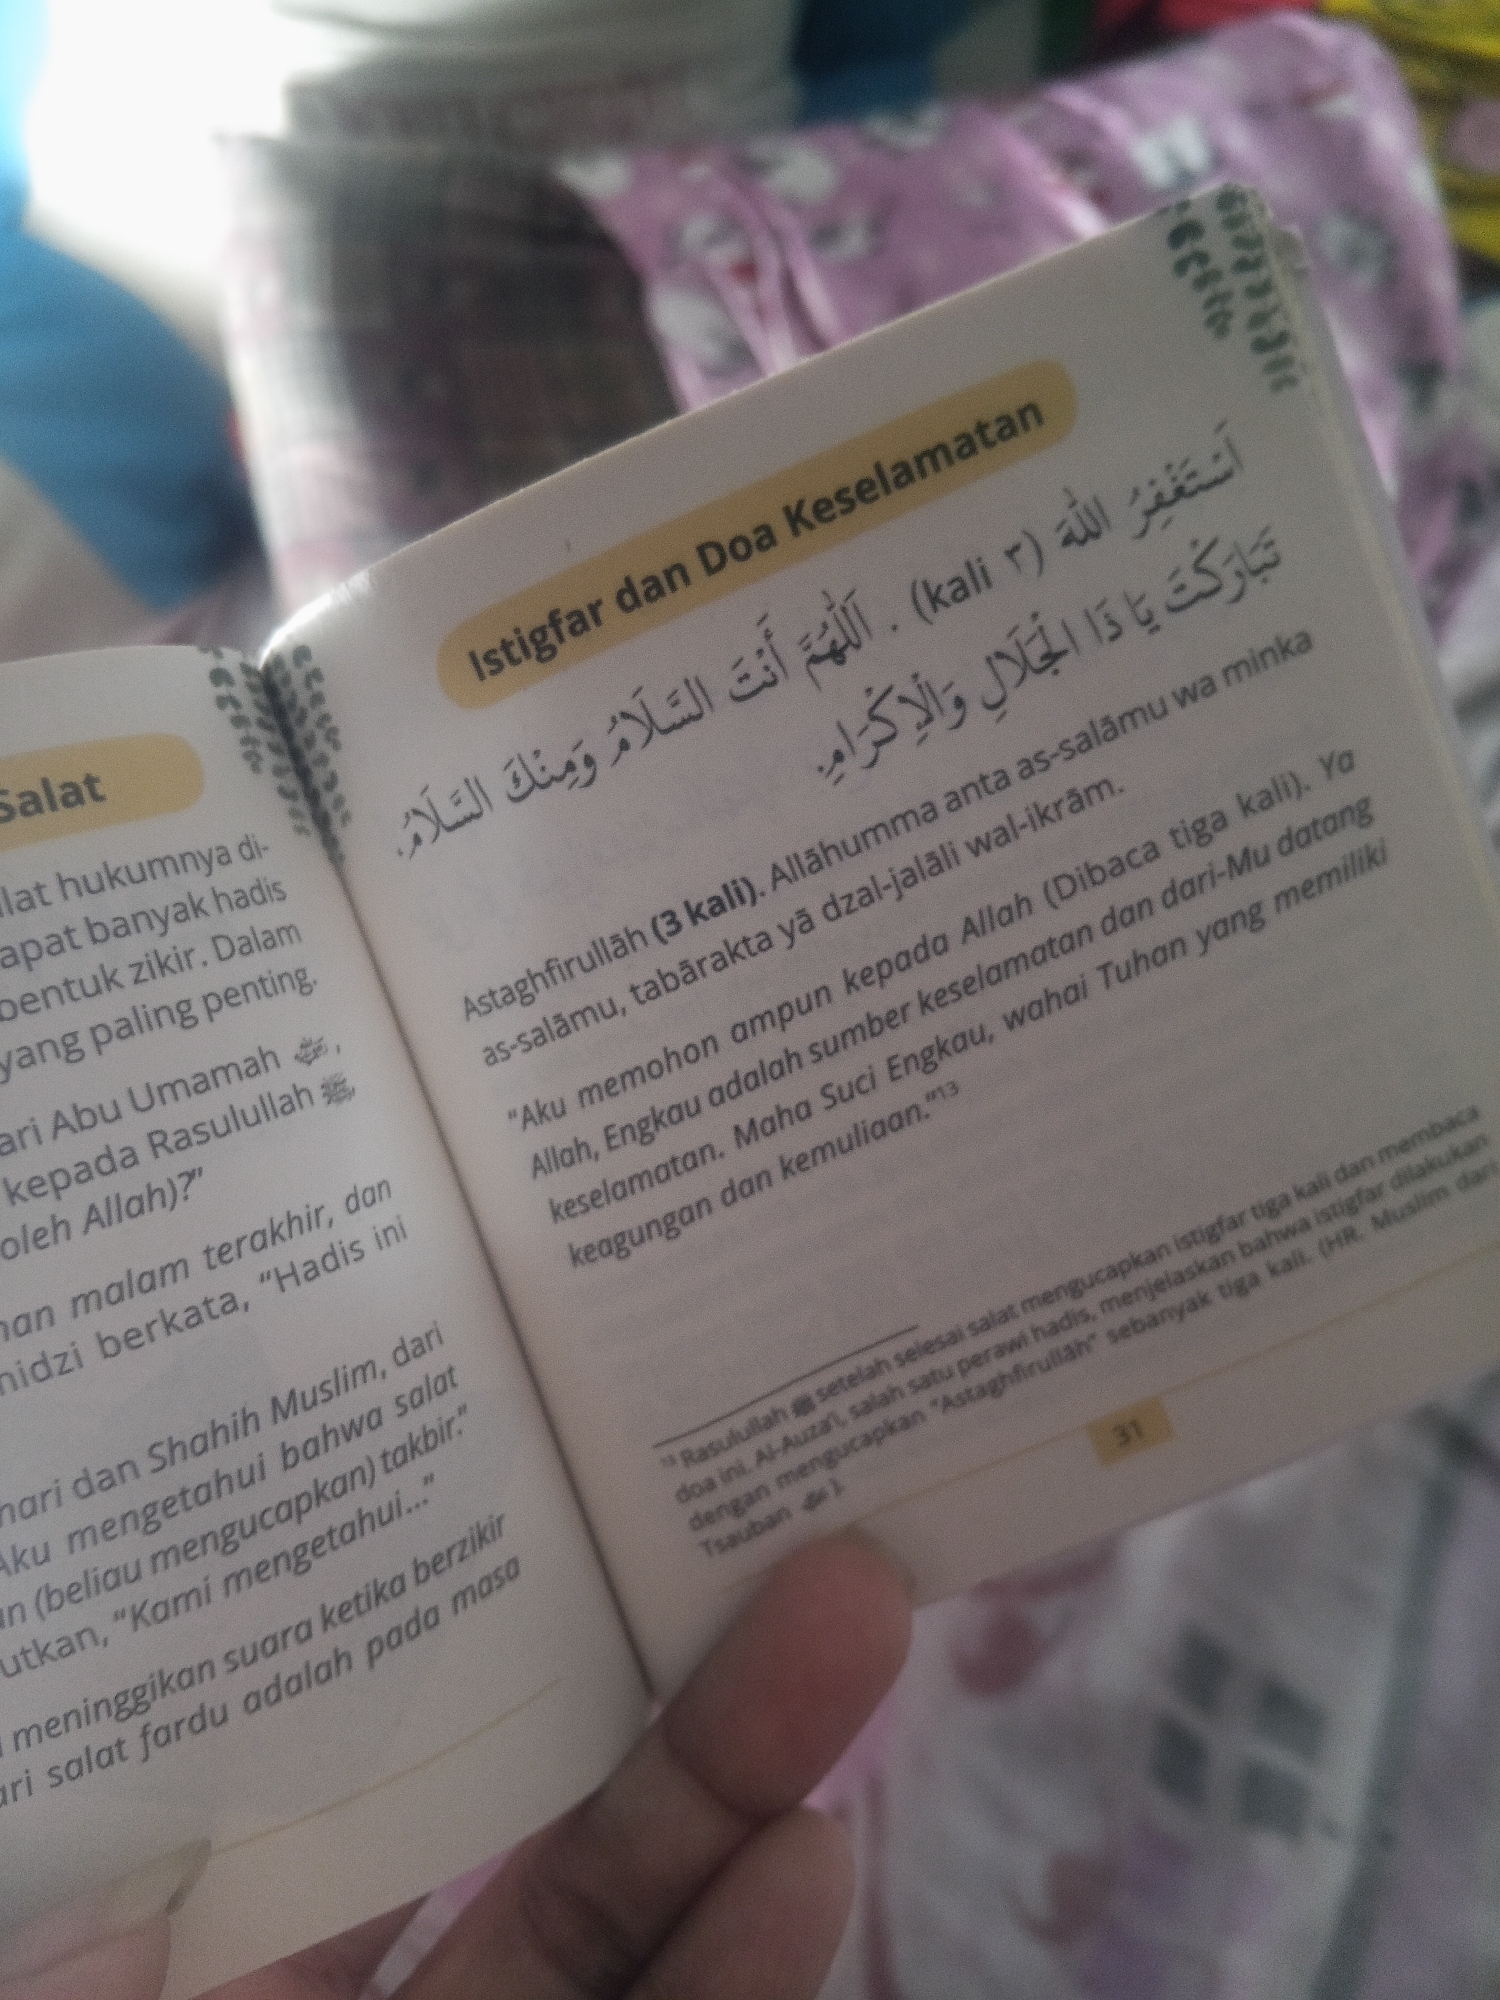 Salat
hukumnya di-
banyak hadis
bentuk zikir. Dalam
yang paling penting.
Abu Umamah
kepada Rasulullah ﷺ,
oleh Allah)?"
malam terakhir, dan
berkata, "Hadis ini
dan Shahih Muslim, dari
mengetahui bahwa salat
(beliau mengucapkan) takbir."
"Kami mengetahui..."
meninggikan suara ketika berzikir
salat fardu adalah pada masa
Istigfar dan Doa Keselamatan
اَسْتَغْفِرُ اللّٰهَ (٣ kali) . اَللّٰهُمَّ أَنْتَ السَّلَامُ وَمِنْكَ السَّلَامُ،
تَبَارَكْتَ يَا ذَا الْجَلَالِ وَالْاِكْرَامِ.
Astaghfirullāh (3 kali). Allāhumma anta as-salāmu wa minka
as-salāmu, tabārakta yā dzal-jalāli wal-ikrām.
"Aku memohon ampun kepada Allah (Dibaca tiga kali). Ya
Allah, Engkau adalah sumber keselamatan dan dari-Mu datang
keselamatan. Maha Suci Engkau, wahai Tuhan yang memiliki
keagungan dan kemuliaan."¹³
¹³ Rasulullah ﷺ setelah selesai salat mengucapkan istigfar tiga kali dan membaca
doa ini. Al-Auza'i, salah satu perawi hadis, menjelaskan bahwa istigfar dilakukan
dengan mengucapkan "Astaghfirullāh" sebanyak tiga kali. (HR. Muslim dari
Tsauban ).
31